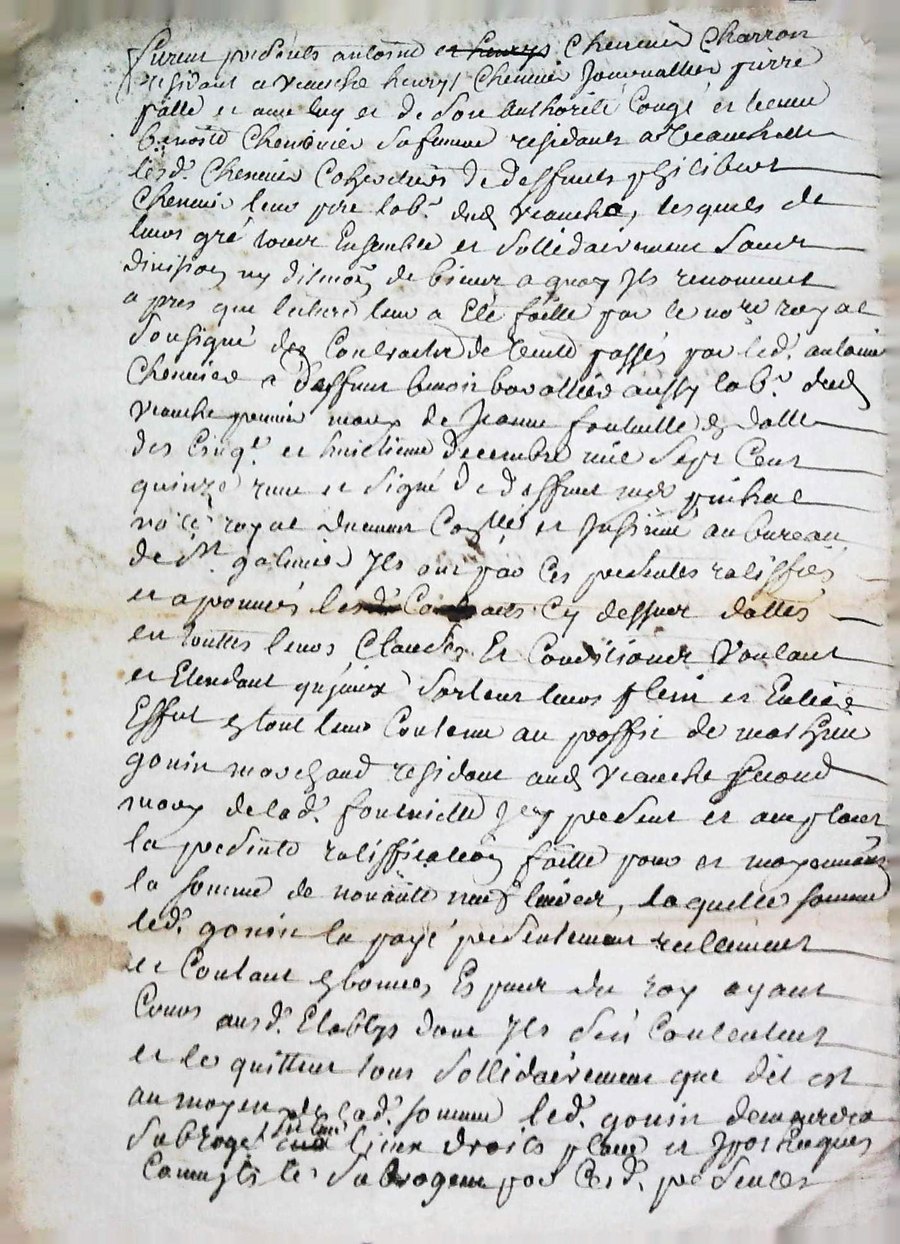 furent presents antoine et henrys Chenevier Charron
residant a veauche henrys Chenevier Journallier pierre
fatte et anne luy et de son authorité Congé et licence
benoitte Chenevier sa femme residants a Veauchette
lesd. Chenevier Coheritiers de deffunts philibert
Chenevier leur pere lab.r dud Veauche, lesquels de
leurs gré tous Ensemble et sollidairement sans
division ny discution de biens a quoy Ils renoncent
apres que lecture leur a Eté faitte par le no.re royal
sousigné des Contracts de vente passés par led. antoine
Chenevier a deffunt benoit aussy lab.r dud
Veauche premier mary de Jeanne fontvielle en datte
des Cinq.e et huictieme decembre mil sept Cent
quinze receu et signé de deffunt me
no.re royal et Insinué au bureau
de S.t galmier Ils ont par Ces presentes ratiffiés
et aprouvés lesd. Contracts Cy dessus dattés
en touttes leurs Clauses Et Conditions Voulant
et Entendant qu'iceux sortent leurs plein et Entier
Effet et tout leur Contenu au proffit de mathieu
gonin marchand residant aud Veauche second
mary de lad. fontvielle Icy present et acceptant
la presente ratiffication faitte pour et moyennant
la somme de nonante neuf livres, laquelle somme
led. gonin la payé presentement reellement
et Contant en bonnes Especes du roy ayant
Cours ausd. Etablys dont Ils sen Contentent
et le quittent tous sollidairement que dit est
au moyen de lad. somme led. gonin demeurera
subrogé lieux droits place et Ipotheques
Comme Ils le subrogent par Cesd. presentes